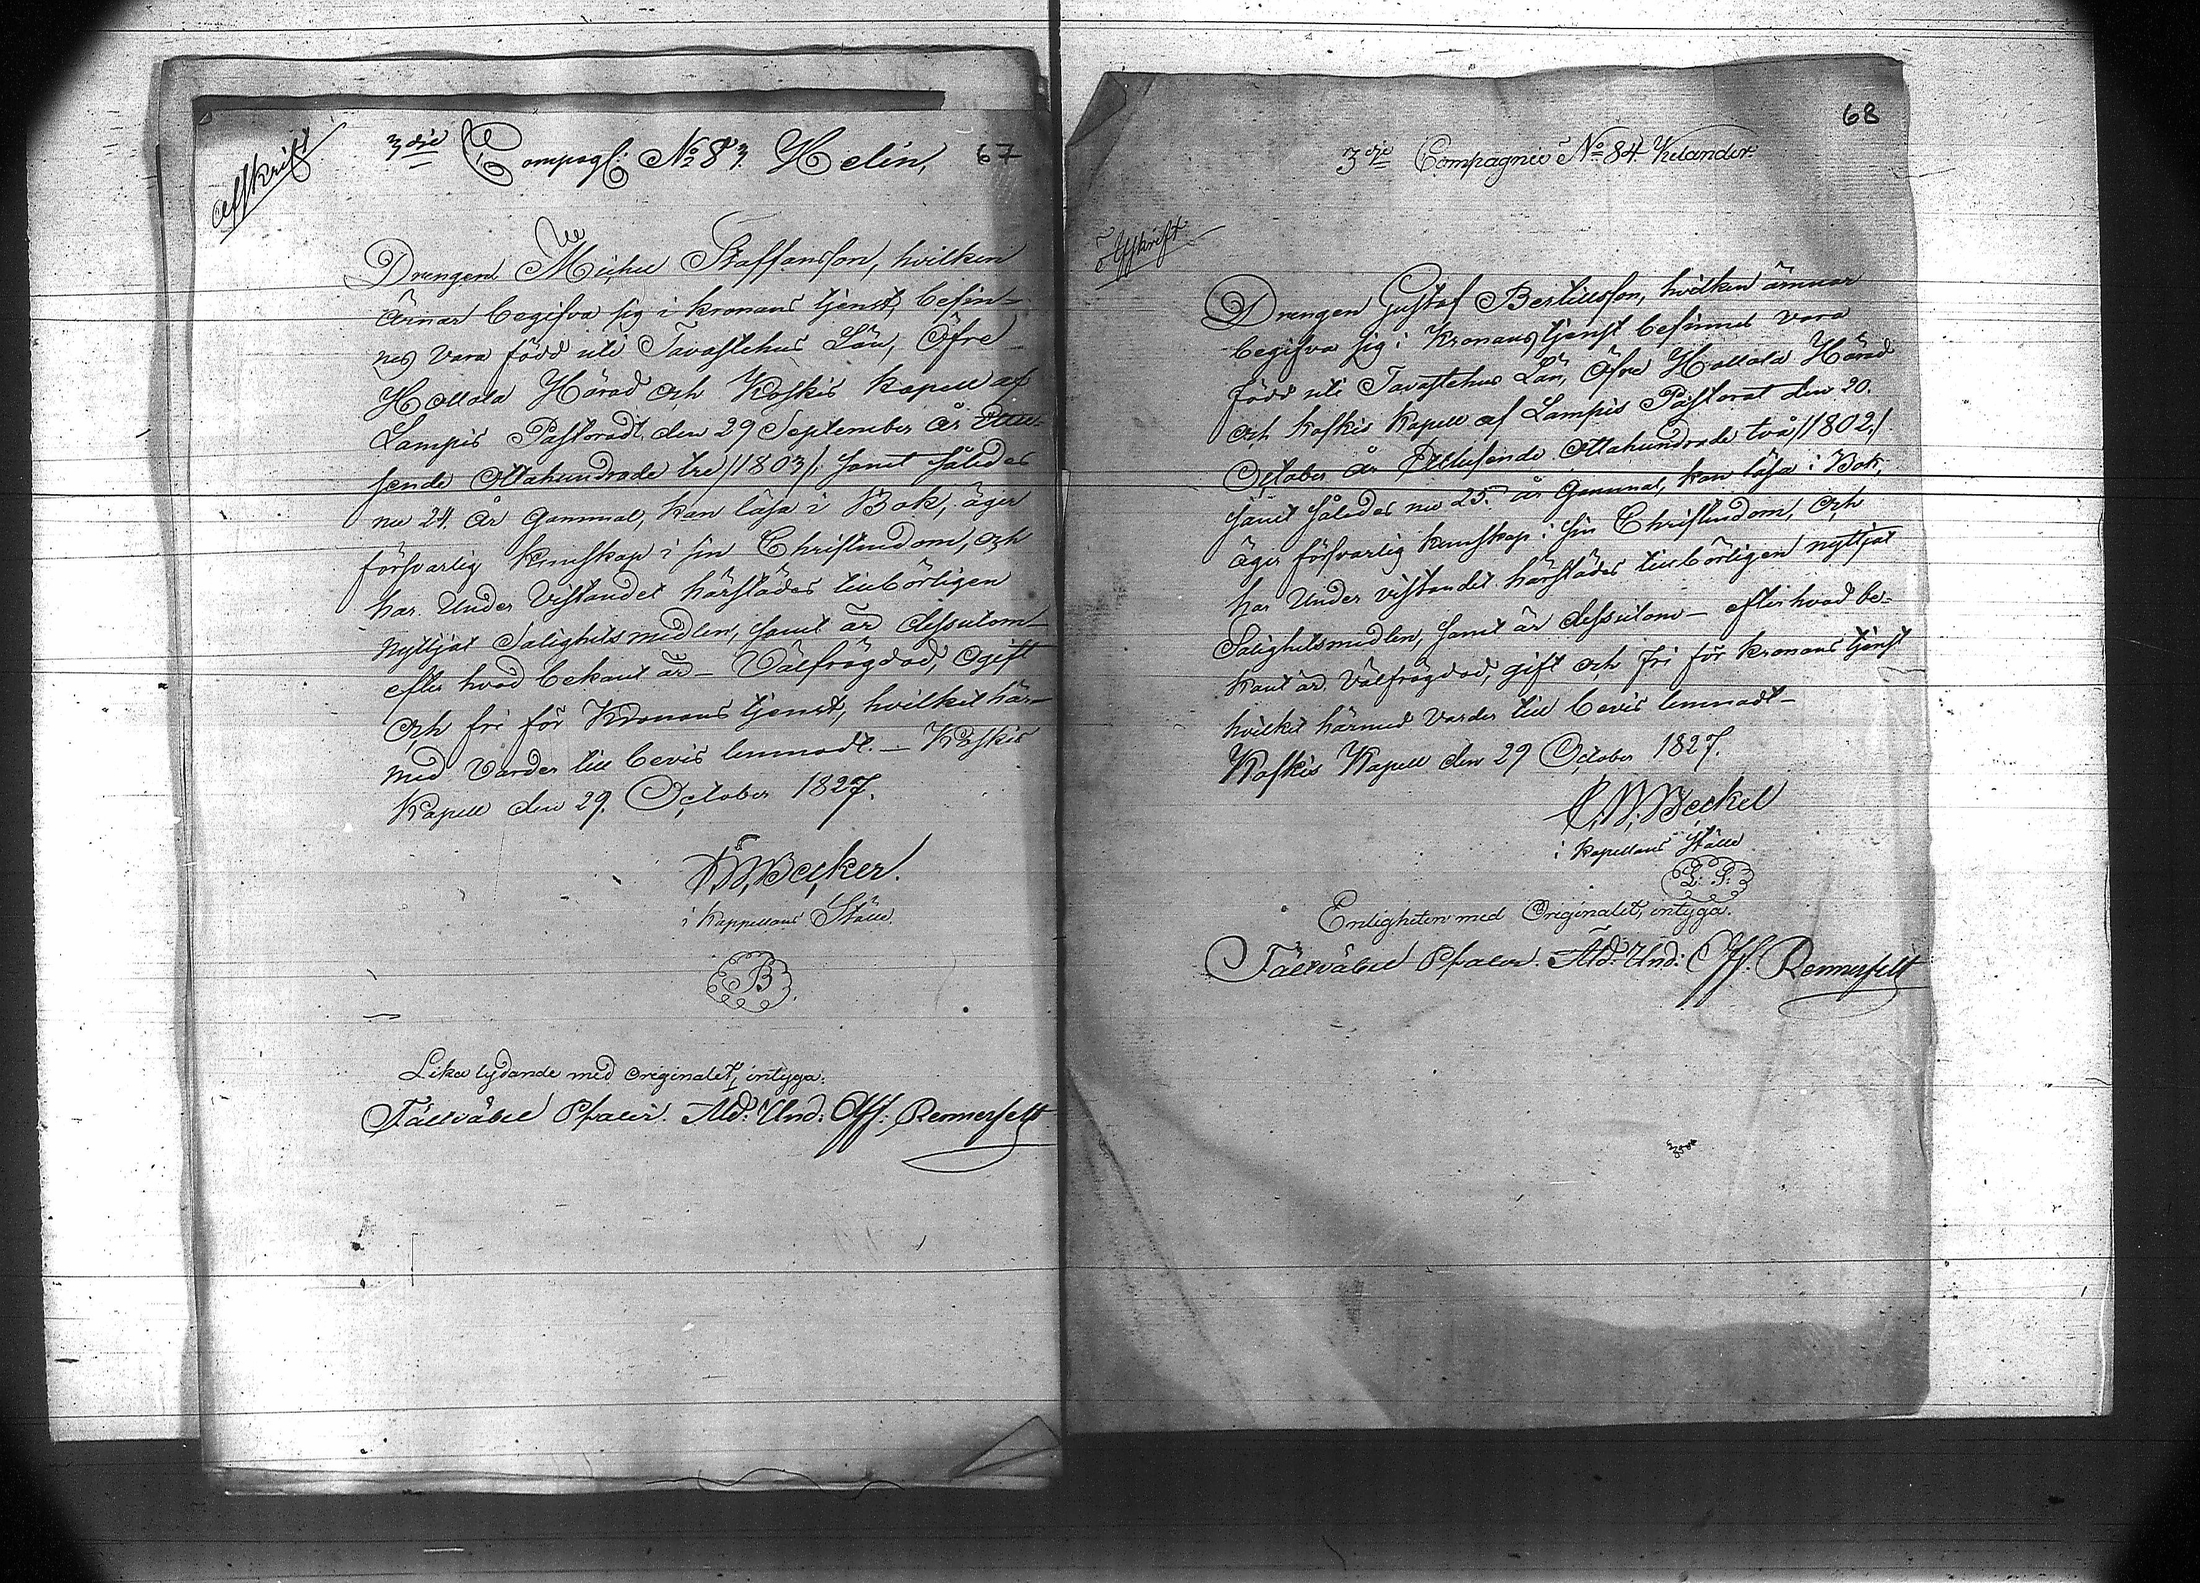 Afskrift
3dje Compagt: No 83. Helin, 67
Drengen Michel Staffansson, hvilken
ärnar begifva sig i kronans tjenst, befin-
nes vara född uti Tavastehus Län, Öfre
Hollola Härad och Koskis kapell af
Lampis Pastoradt, den 29 September år Ettu-
sende Ottahundrade tre /1803/, samt således
nu 24. år gammal, kan läsa i Bok, äger
försvarlig kunskap i sin Christendom, och
har under vistandet härstädes tillbörligen
nyttjat Salighetsmedlen, samt är dessutom -
efter hvad bekant är - Välfrägdad, Ogift
och fri för Kronans tjenst, hvilket här-
med varder till bevis lemnadt. - Koskis
Kapell den 29. October 1827.
Becker.
i kappellans Ställe.
B
Lika lydande med Originalet, intyga:
Fältväbel Pfaler. Ald: Und: Off: Rennerfelt
68
3dje Compagnie No 84 Kelander
Afskrift
Drengen Gustaf Bertillsson, hvilken ärnar
begifva sig i Kronans tjenst befinnes vara
född uti Tavastehus Län, Öfre Hollola Härad
och Koskis Kapell af Lampis Pastorat den 20.
October år Ettusende Ottahundrade två /1802/
samt således nu 25. år gammal, kan läsa i Bok,
äger försvarlig kunskap i sin Christendom, och
har under vistandet härstädes tillbörligen nyttjat
Salighetsmedlen, samt är dessutom - efter hvad be-
kant är, Välfrägdad, gift och fri för kronans tjenst
hvilket härmed varder till bevis lemnadt -
Koskis Kapell den 29 October 1827.
C. W. Beckel
i kapellans Ställe
L. S.
Enligheten med Originalet, intyga.
Fältväbel Pfaler. Ald: Und: Off: Rennerfelt